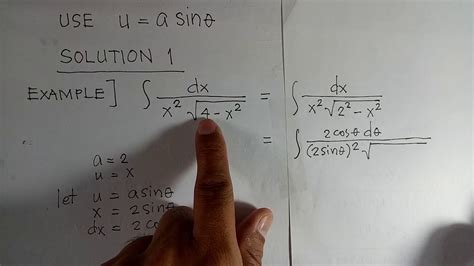 USE u = a sinθ
SOLUTION 1
EXAMPLE] ∫ dx / x² √4 - x² = ∫ dx / x² √2² - x²
= ∫ 2cosθ dθ / (2sinθ)² √
a = 2
u = x
let u = asinθ
x = 2sinθ
dx = 2co